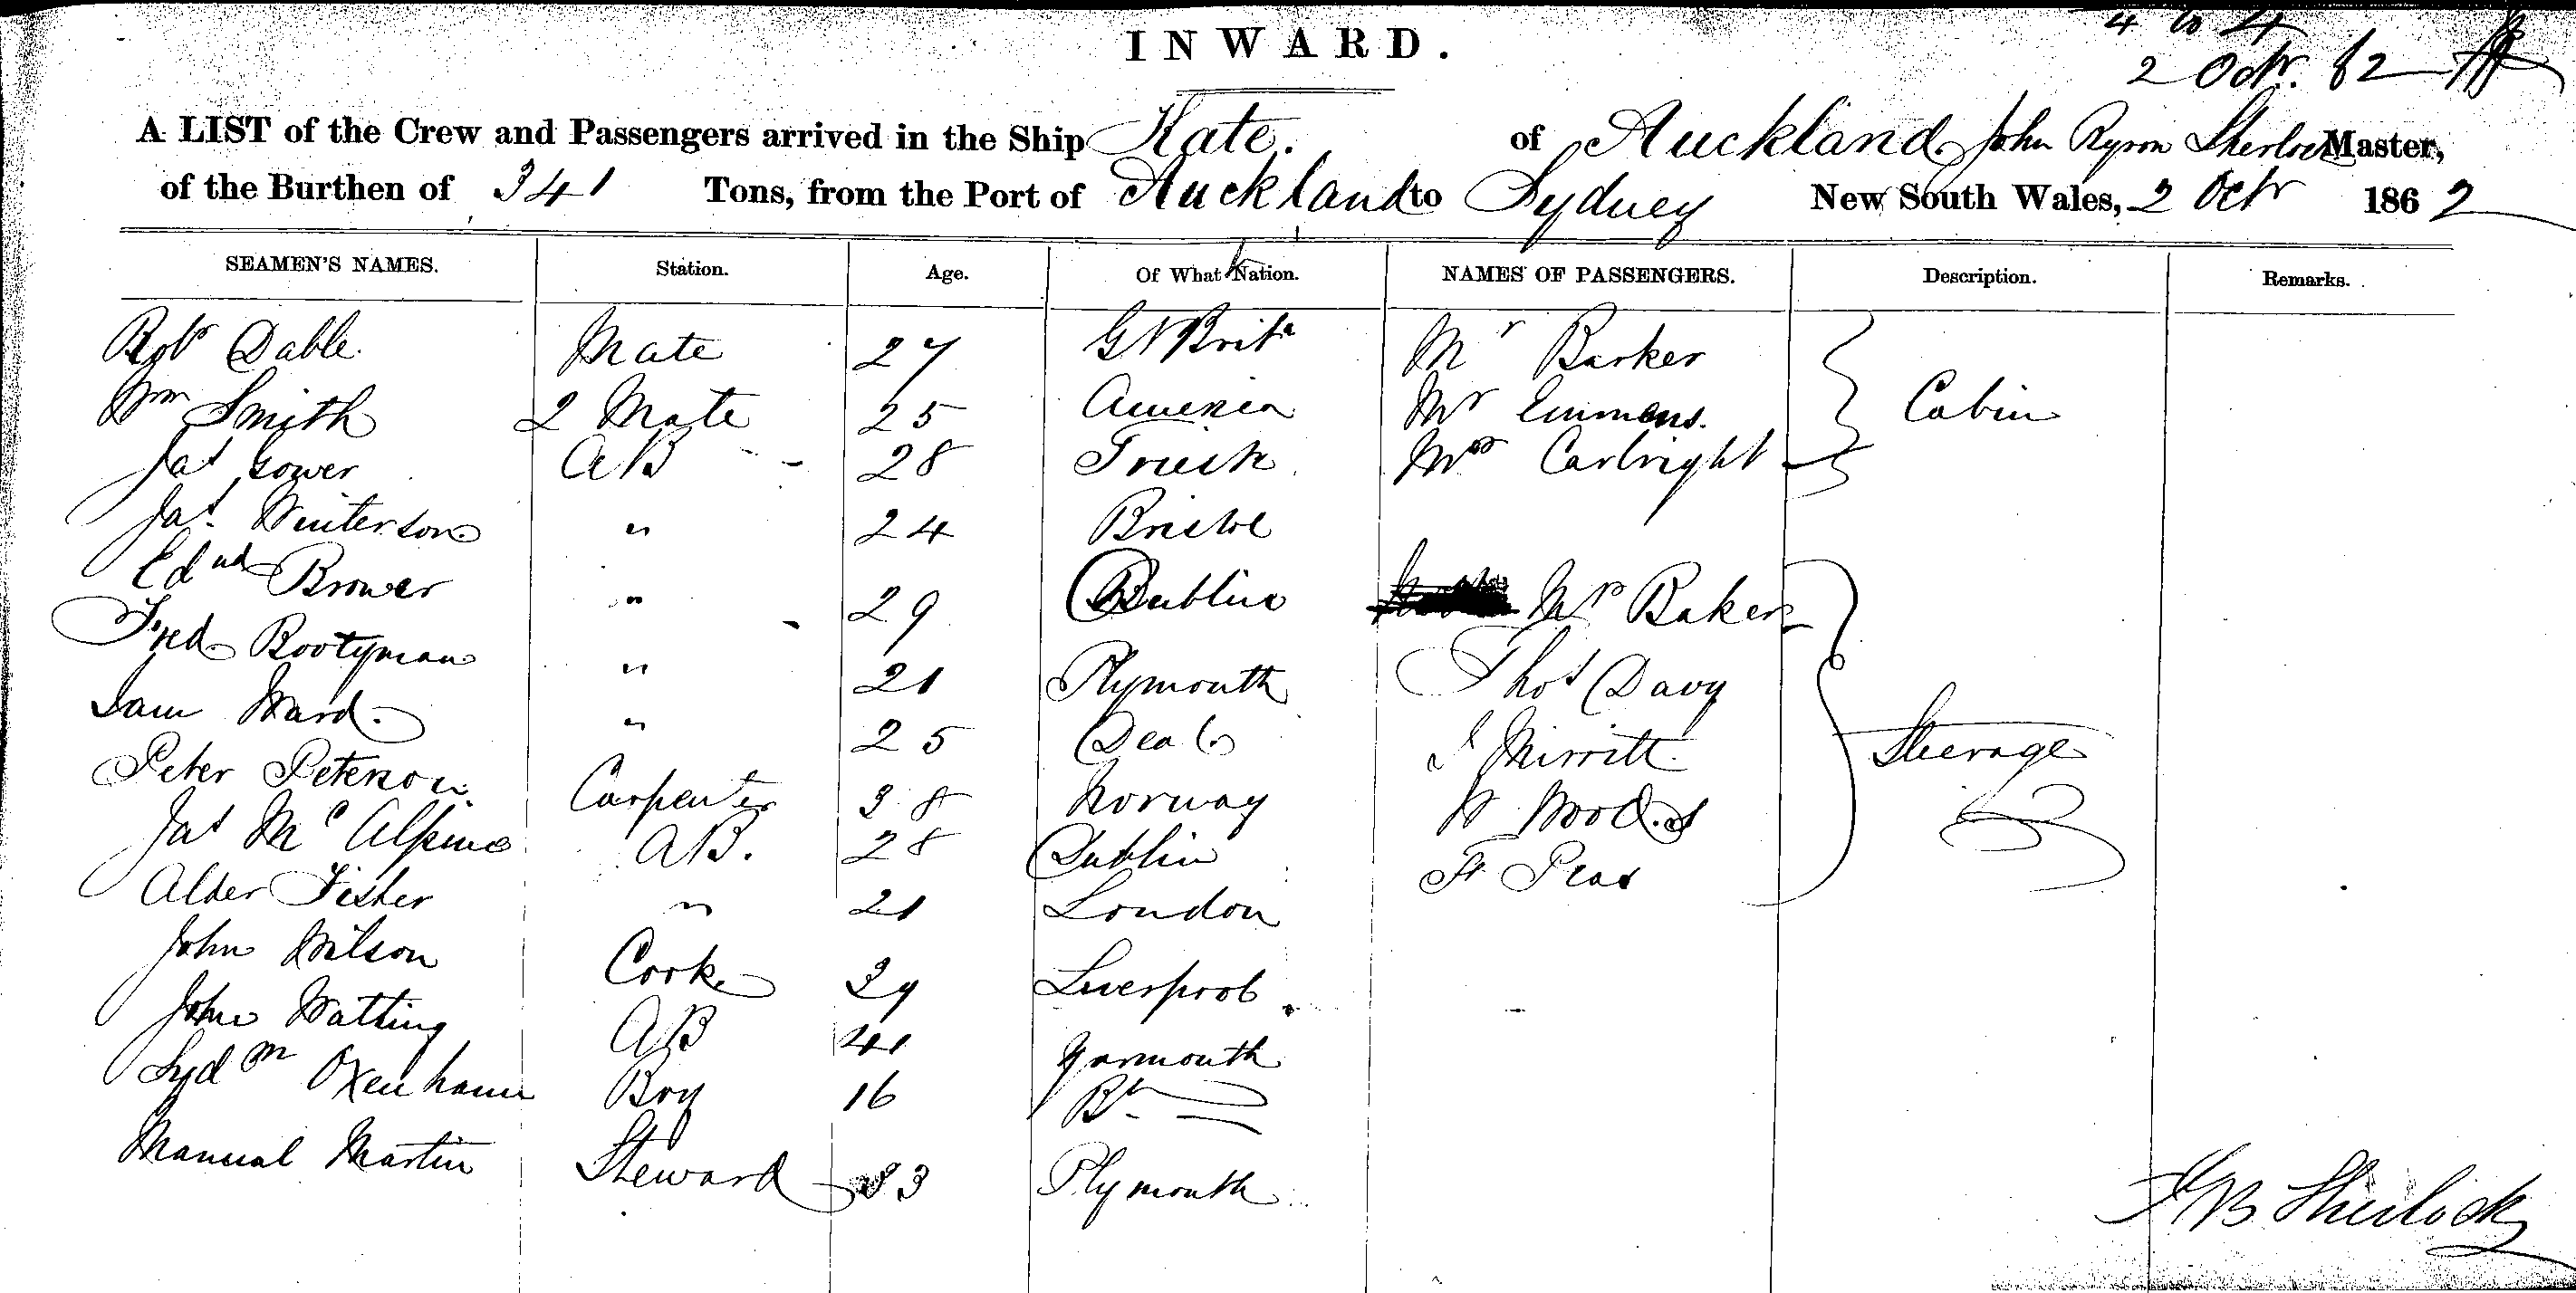 4 to 4
2 Octr. 62
INWARD.
A LIST of the Crew and Passengers arrived in the Ship Kate. of Auckland John Byron Sherlock Master,
of the Burthen of 341 Tons, from the Port of Auckland to Sydney New South Wales, 2 Octr 1862
SEAMEN'S NAMES. Station. Age. Of What Nation. NAMES OF PASSENGERS. Description. Remarks.
Robt Dable. Mate 27 Gt Britn Mr Barker
Wm Smith 2 Mate 25 America Mr Emmens. Cabin
Jas Gower AB 28 Mrs Cartright
Jas. Winterson " 24 Bristol
Edwd Brower " 29 Dublin Mrs Baker
Fred Bootyman " 21 Plymouth Thos Davy
Sam Ward. " 25 Deal J Mirritt Steerage
Peter Peterson. Carpenter 38 Norway W Woods
Jas Mc Alpine AB. 28 Dublin F Peas
Alder Fisher " 21 London
John Wilson Cook 39 Liverpool
John Watling AB 41 Yarmouth
Sydm Oxenham Boy 16
Manual Martin Steward 33 Plymouth
JB Sherlock